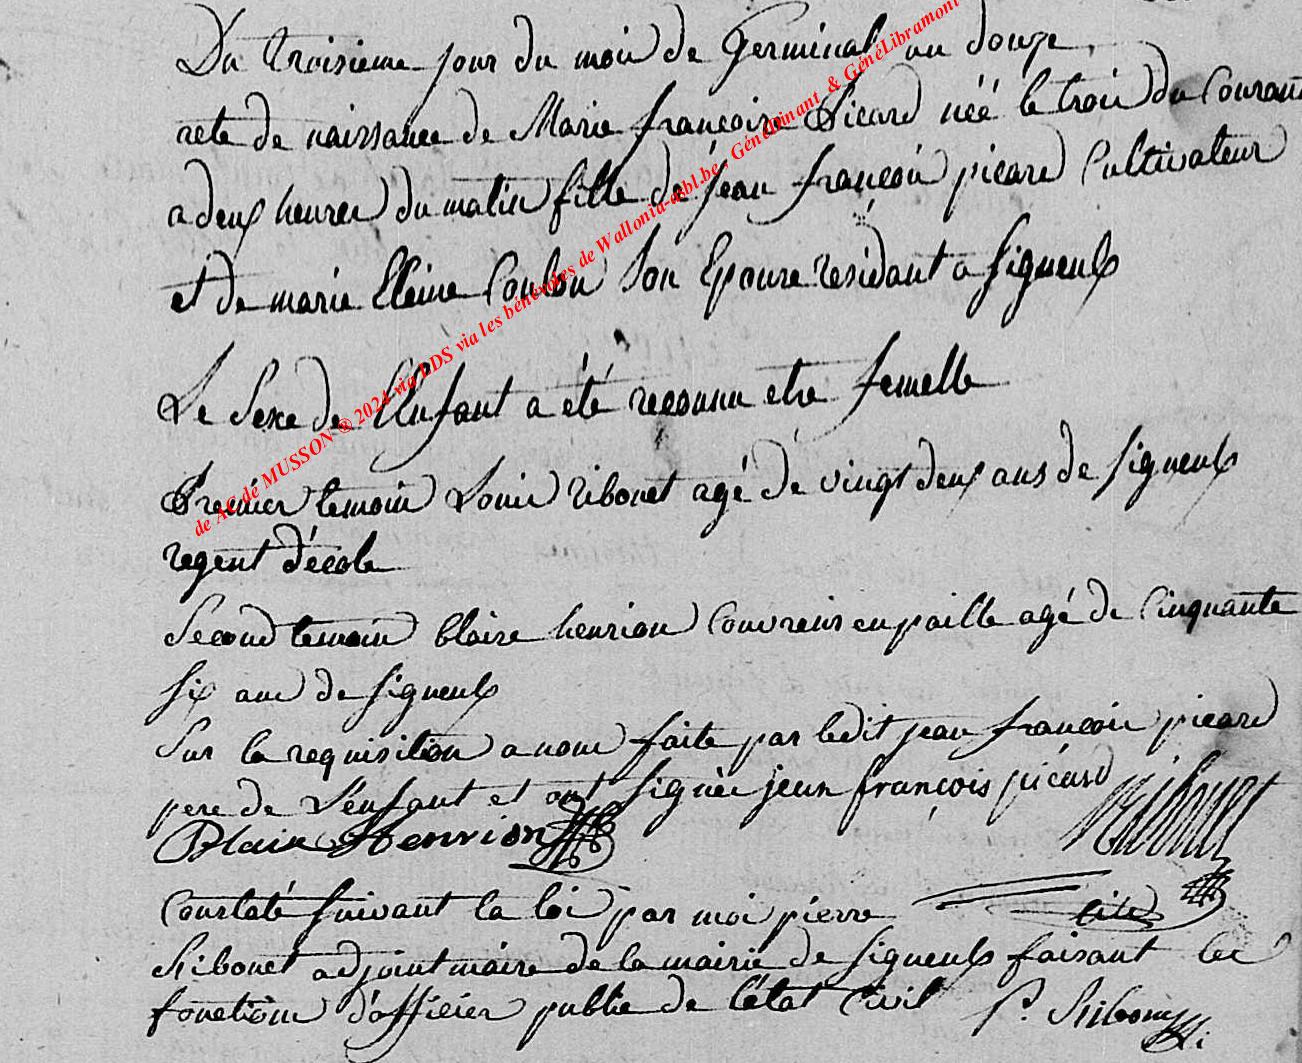 Du troisieme jour du mois de Germinal an douze,
acte de naissance de Marie françoise Picard néé le trois du Courant
a deux heures du matin fille de jean françois picard Cultivateur
et de marie Eleine Coulon son Epouse residant a signeulx
Le Sexe de l'Enfant a été reconnu etre femelle
Premier temoin Louis ribonet agé de vingt deux ans de signeulx
regent d'école
Second temoin blaise henrion Couvreur en paille agé de Cinquante
six ans de signeulx
Sur la requisition a nous faite par ledit jean françois picard
pere de L'enfant et ont signés jean françois picard Ribonet
Blaise Henrion
Constaté suivant la loi par moi pierre
Ribonet adjoint maire de la mairie de signeulx faisant les
fonctions d'officier public de l'état Civil P. Ribonet
de AC de MUSSON ® 2024 via LDS via les bénévoles de Wallonia-asbl.be - GénéDinant & GénéLibramont